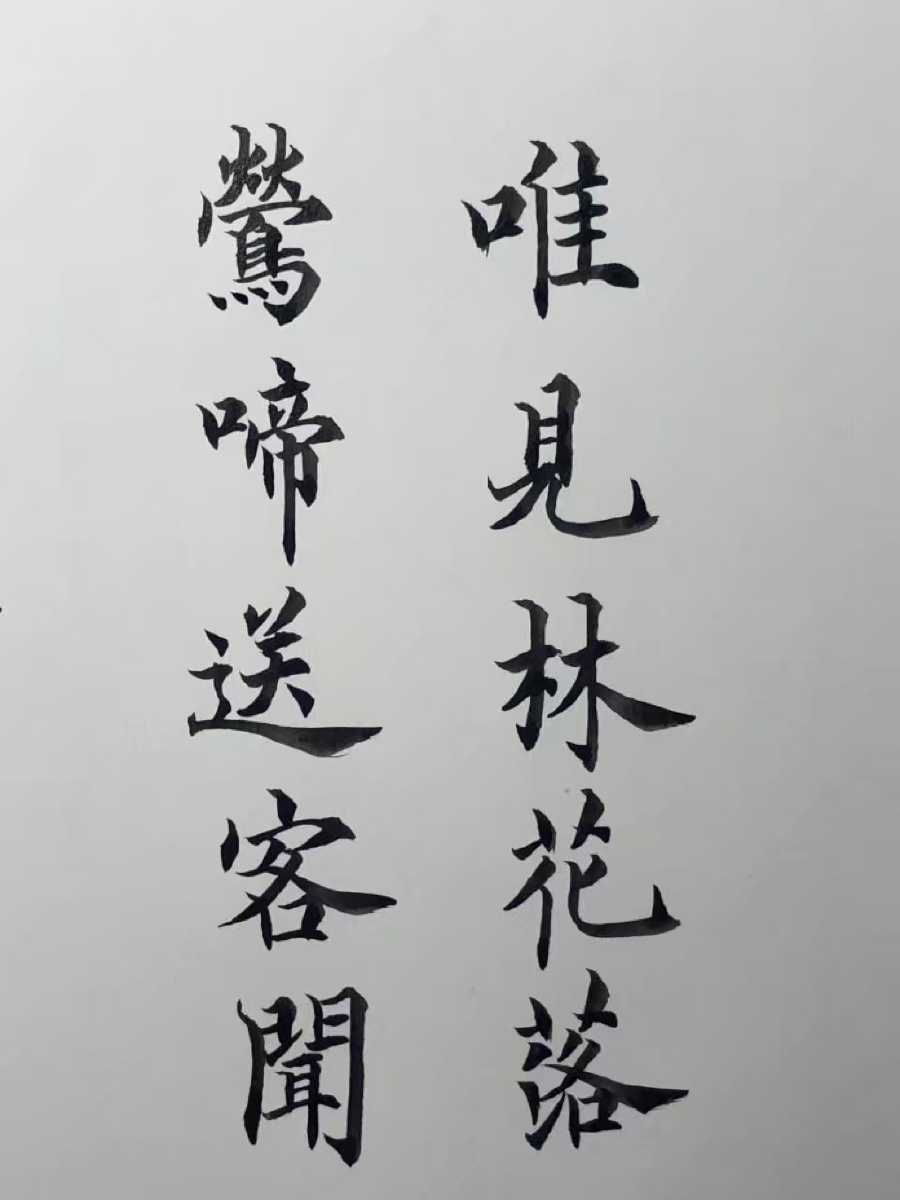 唯見林花落
鶯啼送客聞